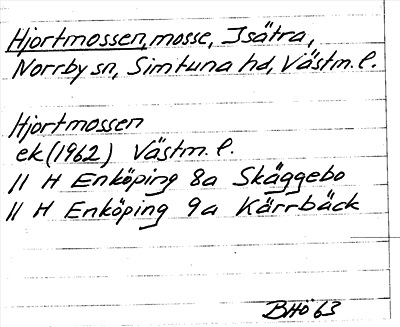 Hjortmossen, mosse, Isätra,
Norrby sn, Simtuna hd, Västm. l.
Hjortmossen
ek (1962) Västm. l.
11 H Enköping 8a Skäggebo
11 H Enköping 9a Kärrbäck
BHö 63